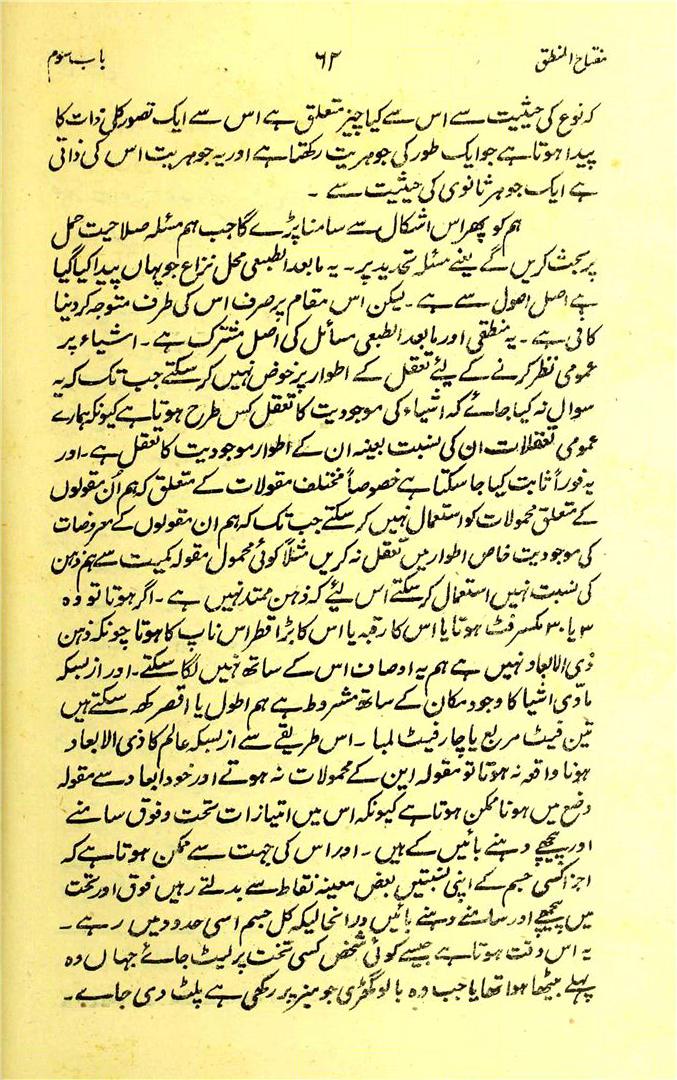 مفتاح المنطق ۶۲ باب سوم
کہ نوع کی حیثیت سے اس سے کیا چیز متعلق ہے اس سے ایک تصور کلی ذات کا
پیدا ہوتا ہے جو ایک طور کی جوہریت رکھتا ہے اور یہ جوہریت اس کی ذاتی
ہے ایک جوہر ثانوی کی حیثیت سے ۔
ہم کو پھر اس اشکال سے سامنا پڑے گا جب ہم مسئلہ صلاحیت حمل
پر بحث کریں گے یعنے مسئلہ تحدید پر ۔ یہ مابعد الطبعی محل نزاع جو یہاں پیدا کیا گیا
ہے اصل اصول سے ہے ۔ لیکن اس مقام پر صرف اس کی طرف متوجہ کر دینا
کافی ہے ۔ یہ منطقی اور مابعد الطبعی مسائل کی اصل مشترک ہے ۔ اشیاء پر
عمومی نظر کرنے کے لیئے تعقل کے اطوار پر خوض نہیں کر سکتے جب تک کہ یہ
سوال نہ کیا جائے کہ اشیاء کی موجودیت کا تعقل کس طرح ہوتا ہے کیونکہ ہمارے
عمومی تعقلات ان کی نسبت بعینہ ان کے اطوار موجودیت کا تعقل ہے ۔ اور
یہ فوراً ثابت کیا جا سکتا ہے خصوصاً مختلف مقولات کے متعلق کہ ہم اُن مقولوں
کے متعلق محمولات کو استعمال نہیں کر سکتے جب تک کہ ہم ان مقولوں کے معروضات
کی موجودیت خاص اطوار میں تعقل نہ کریں مثلاً کوئی محمول مقولہ کمیت سے ہم ذہن
کی نسبت نہیں استعمال کر سکتے اس لیئے کہ ذہن ممتد نہیں ہے ۔ اگر ہوتا تو وہ
۳ یا ۳۰ مکسر فٹ ہوتا یا اس کا رقبہ یا اس کا بڑا قطر اس ناپ کا ہوتا چونکہ ذہن
ذی الابعاد نہیں ہے ہم یہ اوصاف اس کے ساتھ نہیں لگا سکتے ۔ اور ازبسکہ
مادّی اشیا کا وجود مکان کے ساتھ مشروط ہے ہم اطول یا اقصر کہہ سکتے ہیں
تین فیٹ مربع یا چار فیٹ لمبا ۔ اس طریقے سے ازبسکہ عالم کا ذی الابعاد
ہونا واقعہ نہ ہوتا تو مقولہ این کے محمولات نہ ہوتے اور خود ابعاد سے مقولہ
وضع میں ہونا ممکن ہوتا ہے کیونکہ اس میں امتیازات تحت و فوق سامنے
اور پیچھے دہنے بائیں کے ہیں ۔ اور اس کی جہت سے ممکن ہوتا ہے کہ
اجزا کسی جسم کے اپنی نسبتیں بعض معینہ نقاط سے بدلتے رہیں فوق اور تحت
میں پیچھے اور سامنے دہنے بائیں درانحالیکہ کل جسم اسی حدود میں رہے ۔
یہ اس وقت ہوتا ہے جیسے کوئی شخص کسی تخت پر لیٹ جائے جہاں وہ
پہلے بیٹھا ہوا تھا یا جب وہ بالو گھڑی جو میز پر رکھی ہے پلٹ دی جاے ۔